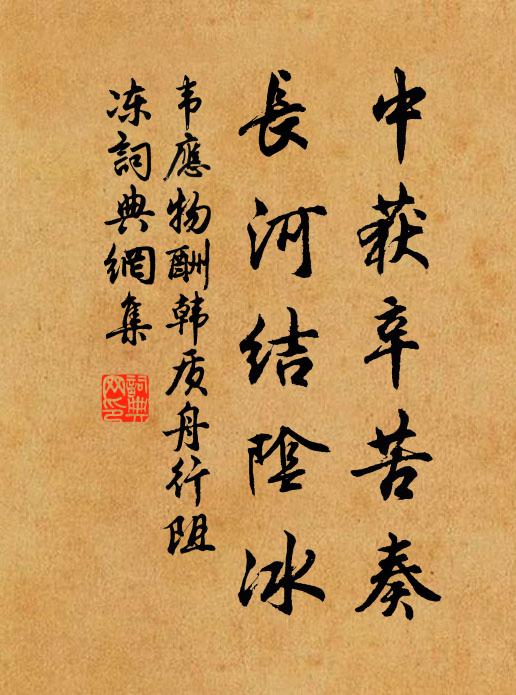 中获辛苦奏
長河结陰冰
韦應物酬韩质舟行阻
冻詞典網集
詞典网印